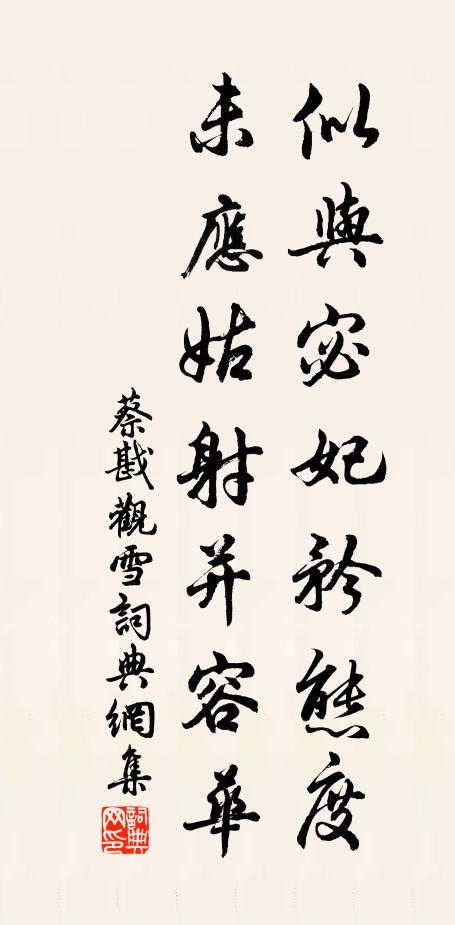 似與宓妃矜態度
未應姑射并容華
蔡戡觀雪詞典網集
詞典網印